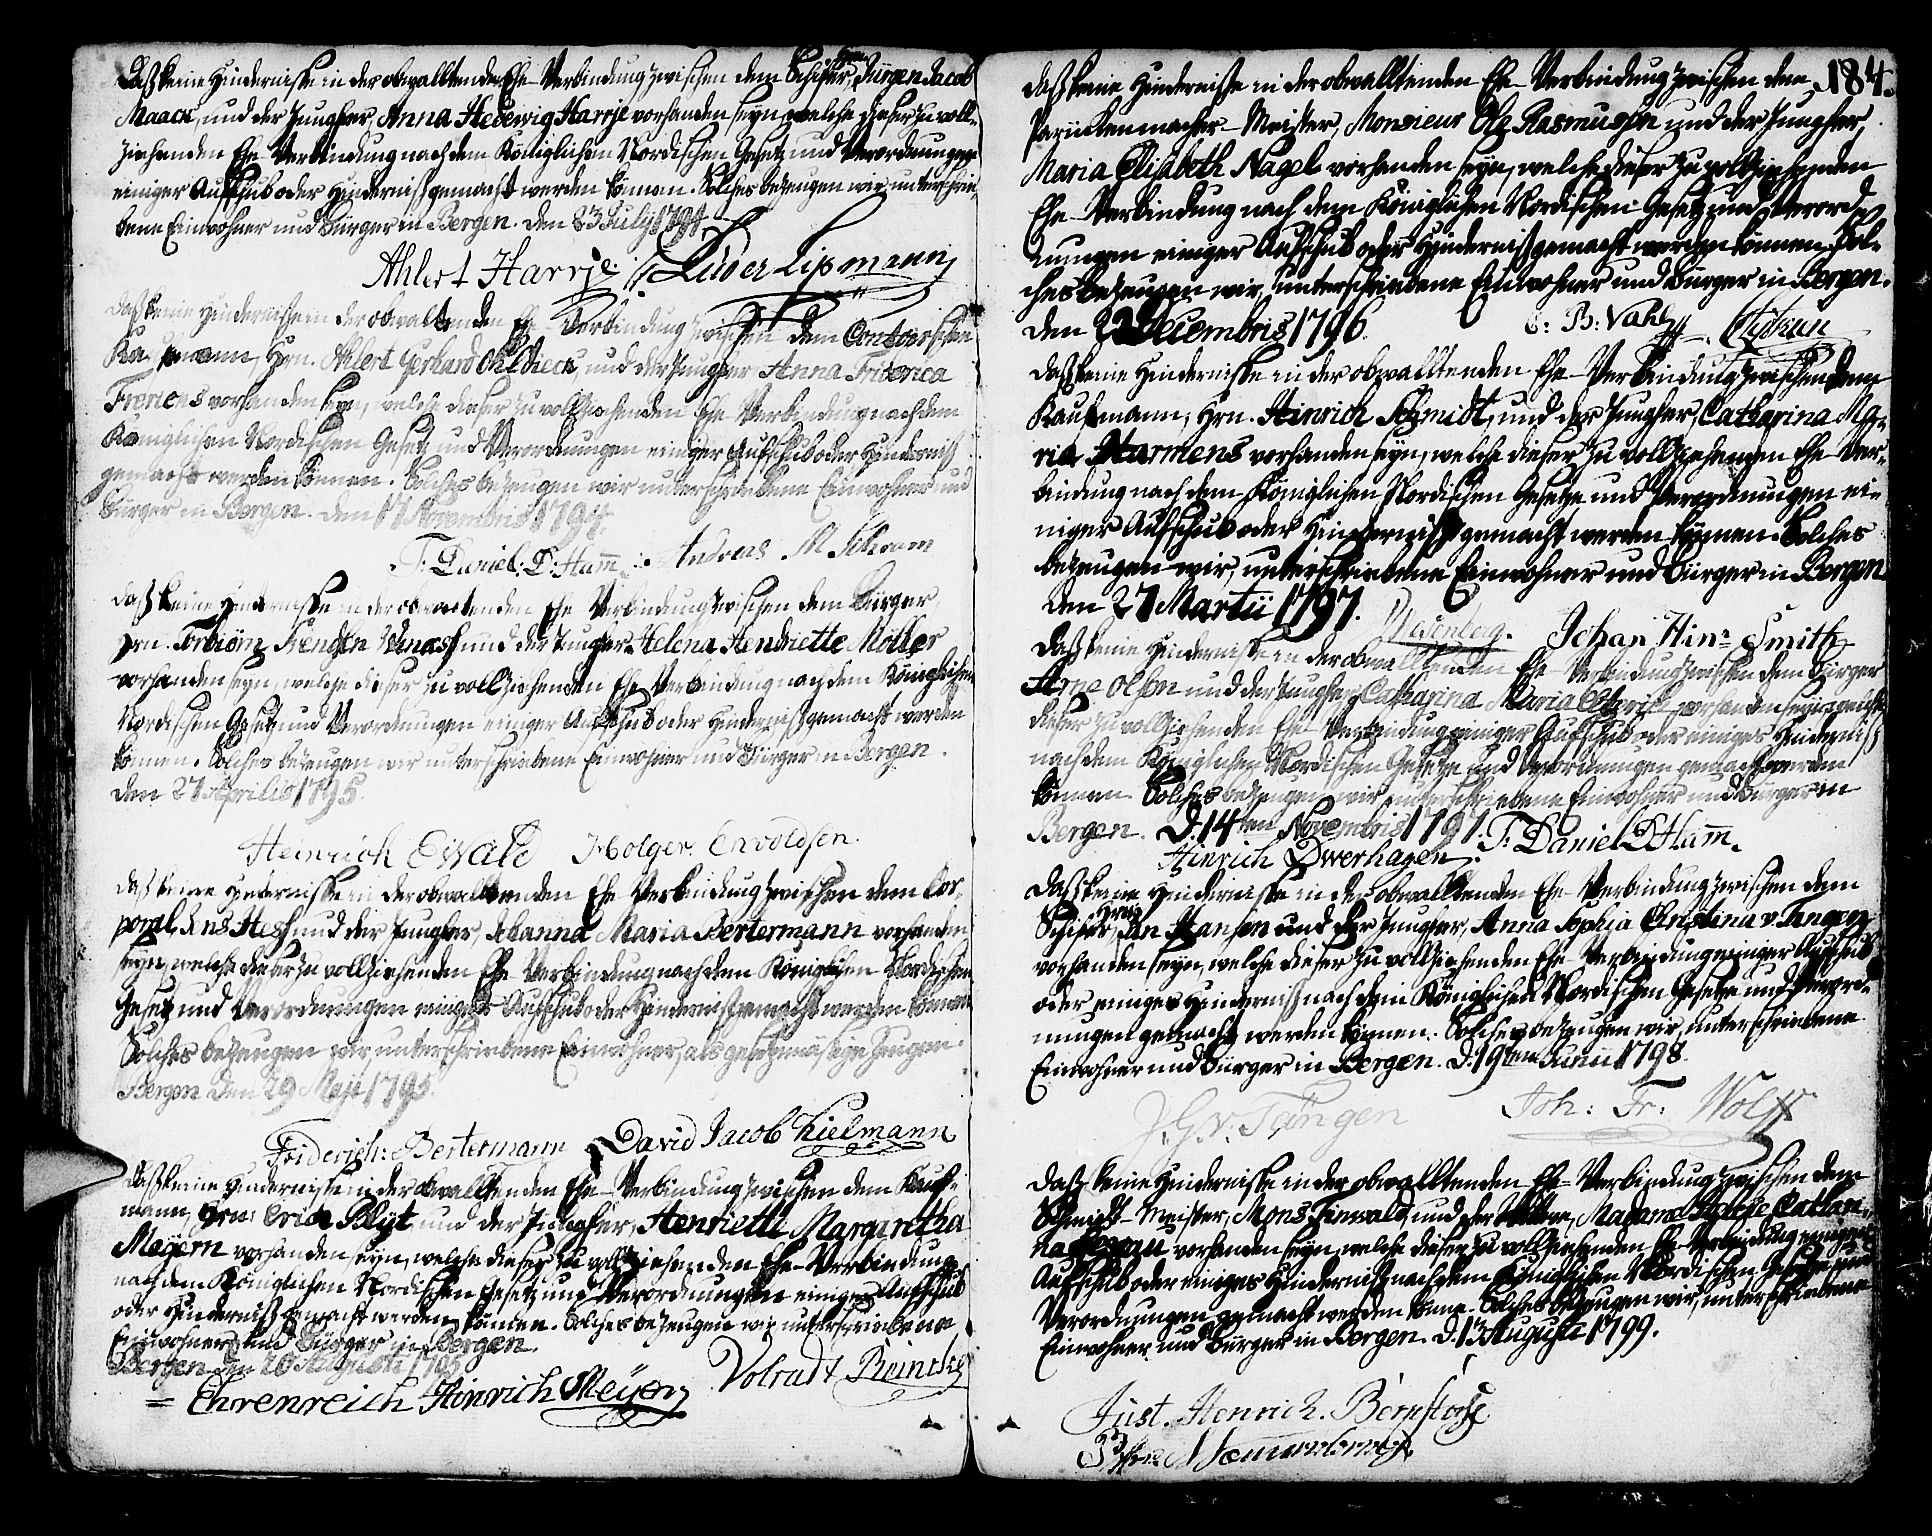 Daß keine Hindernisse in der obwalltenden Ehe-Verbindung zwischen dem Schiffer, Hrn. Jürgen Jacob
Maack, und der Jungfer Anna Hedewig Harrje vorhanden seyn, welche dieser zu voll-
ziehenden Ehe-Verbindung nach dem Königlichen Nordischen Gesetz und Verordnungen
einiger Aufschub oder Hinderniß gemacht werden können. Solches bezeugen wir unterschrie-
bene Einwohner und Bürger in Bergen. Den 23 July 1794.
Ahlert Harrje Lüder Lipmann
Daß keine Hindernisse in der obwaltenden Ehe-Verbindung zwischen dem Contoirschen
Kaufmann, Hrn. Ahlert Gerhard Ohldieck, und der Jungfer Anna Friderica
Frerichs vorhanden seyn, welche dieser zu vollziehenden Ehe-Verbindung nach dem
Königlichen Nordischen Gesetz und Verordnungen einiger Aufschub oder Hinderniß
gemacht werden können. Solches bezeugen wir unterschriebene Einwohner und
Bürger in Bergen. Den 17 Novembris 1794.
T: Daniel: D: Ham̅: Andreas M Schram
Daß keine Hindernisse in der obwaltenden Ehe-Verbindung zwischen dem Bürger,
Hrn. Torbiörn und der Jungfer Helena Hendriette Möller
vorhanden seyn, welche dieser zu vollziehenden Ehe-Verbindung nach dem Königlichen
Nordischen Gesetz und Verordnungen einiger Aufschub oder Hinderniß gemacht werden
können. Solches bezeugen wir unterschriebene Einwohner und Bürger in Bergen.
den 27 Aprilis 1795.
Heinrich Ewald Holger Envoldsen.
Daß keine Hindernisse in der obwalltenden Ehe-Verbindung zwischen dem Cor-
poral Jens Hess und der Jungfer, Johanna Maria Bertermann vorhanden
seyn, welche dieser zu vollziehenden Ehe-Verbindung nach dem Königlichen Nordischen
Gesetz und Verordnungen einiger Aufschub oder Hinderniß gemacht werden können.
Solches bezeugen wir unterschriebene Einwohner, als gesetzmäsige Zeugen.
Bergen den 29 Maji 1795.
Friderich: Bertermann David Jacob Kielmann
Daß keine Hindernisse in der obwalltenden Ehe-Verbindung zwischen dem Kauf-
mann, Hrn. Erich Blyt und der Jungfer, Henriette Margaretha
Meyern vorhanden seyn, welche dieser zu vollziehenden Ehe-Verbindung
nach dem Königlichen Nordischen Gesetz und Verordnungen einiger Aufschub
oder Hinderniß gemacht werden können. Solches bezeugen wir unterschriebene
Einwohner und Bürger in Bergen.
Bergen den 20 Augusti 1795
Ehrenreich Hinrich Meyer Volradt Reincke
184.
Daß keine Hindernisse in der obwalltenden Ehe-Verbindung zwischen dem
Parückenmacher-Meister, Monsieur Ole Rasmusson und der Jungfer,
Maria Elisabeth Nagel vorhanden seyn, welche dieser zu vollziehenden
Ehe-Verbindung nach dem Königlichen Nordischen Gesetz und Verord-
nungen einiger Aufschub oder Hinderniß gemacht werden können. Sol-
ches bezeugen wir unterschriebene Einwohner und Bürger in Bergen.
den Decembris 1796. B: Vahl
Daß keine Hindernisse in der obwalltenden Ehe-Verbindung zwischen dem
Kaufmann, Hrn. Hinrich Schmidt, und der Jungfer, Catharina Ma-
ria Harmens vorhanden seyn, welche dieser zu vollziehenden Ehe-Ver-
bindung nach dem Königlichen Nordischen Gesetze und Verordnungen ei-
niger Aufschub oder Hinderniß gemacht werden können. Solches
bezeugen wir, unterschriebene Einwohner und Bürger in Bergen
den 27 Martii 1797. Wesenberg. Johan Hinr Smith
Daß keine Hindernisse in der obwalltenden Ehe-Verbindung zwischen dem Bürger
Arne Olson und der Jungfer, Catharina Maria vorhanden seyn, welche
dieser zu vollziehenden Ehe-Verbindung einiger Aufschub oder einiges Hinderniß
nach dem Königlichen Nordischen Gesetze und Verordnungen gemacht werden
können. Solches bezeugen wir unterschriebene Einwohner und Bürger in
Bergen. D. 14ten Novembris 1797. T. Daniel D Ham̅.
Hinrich Dwerhagen
Daß keine Hindernisse in der obwalltenden Ehe-Verbindung zwischen dem
Schiffer, Hrn. Jan Hanson und der Jungfer, Anna Sophia Christina v. Tangen
vorhanden seyn, welche dieser zu vollziehenden Ehe-Verbindung einiger Aufschub
oder einiges Hinderniß nach dem Königlichen Nordischen Gesetze und Verord-
nungen gemacht werden können. Solches bezeugen wir, unterschriebene
Einwohner und Bürger in Bergen. D. 19ten Junii 1798.
J. G. v. Tangen Joh: Fr: Wolff
Daß keine Hindernisse in der obwalltenden Ehe-Verbindung zwischen dem
Schmidt-Meister, Mons und der Wittwe, Madame Cathari-
na vorhanden seyn, welche dieser zu vollziehenden Ehe-Verbindung einiger
Aufschub oder einiges Hinderniß nach dem Königlichen Nordischen Gesetze und
Verordnungen gemacht werden könne. Solches bezeugen wir, unterschriebene
Einwohner und Bürger in Bergen. D. 13 Augusti 1799.
Just. Henrich.